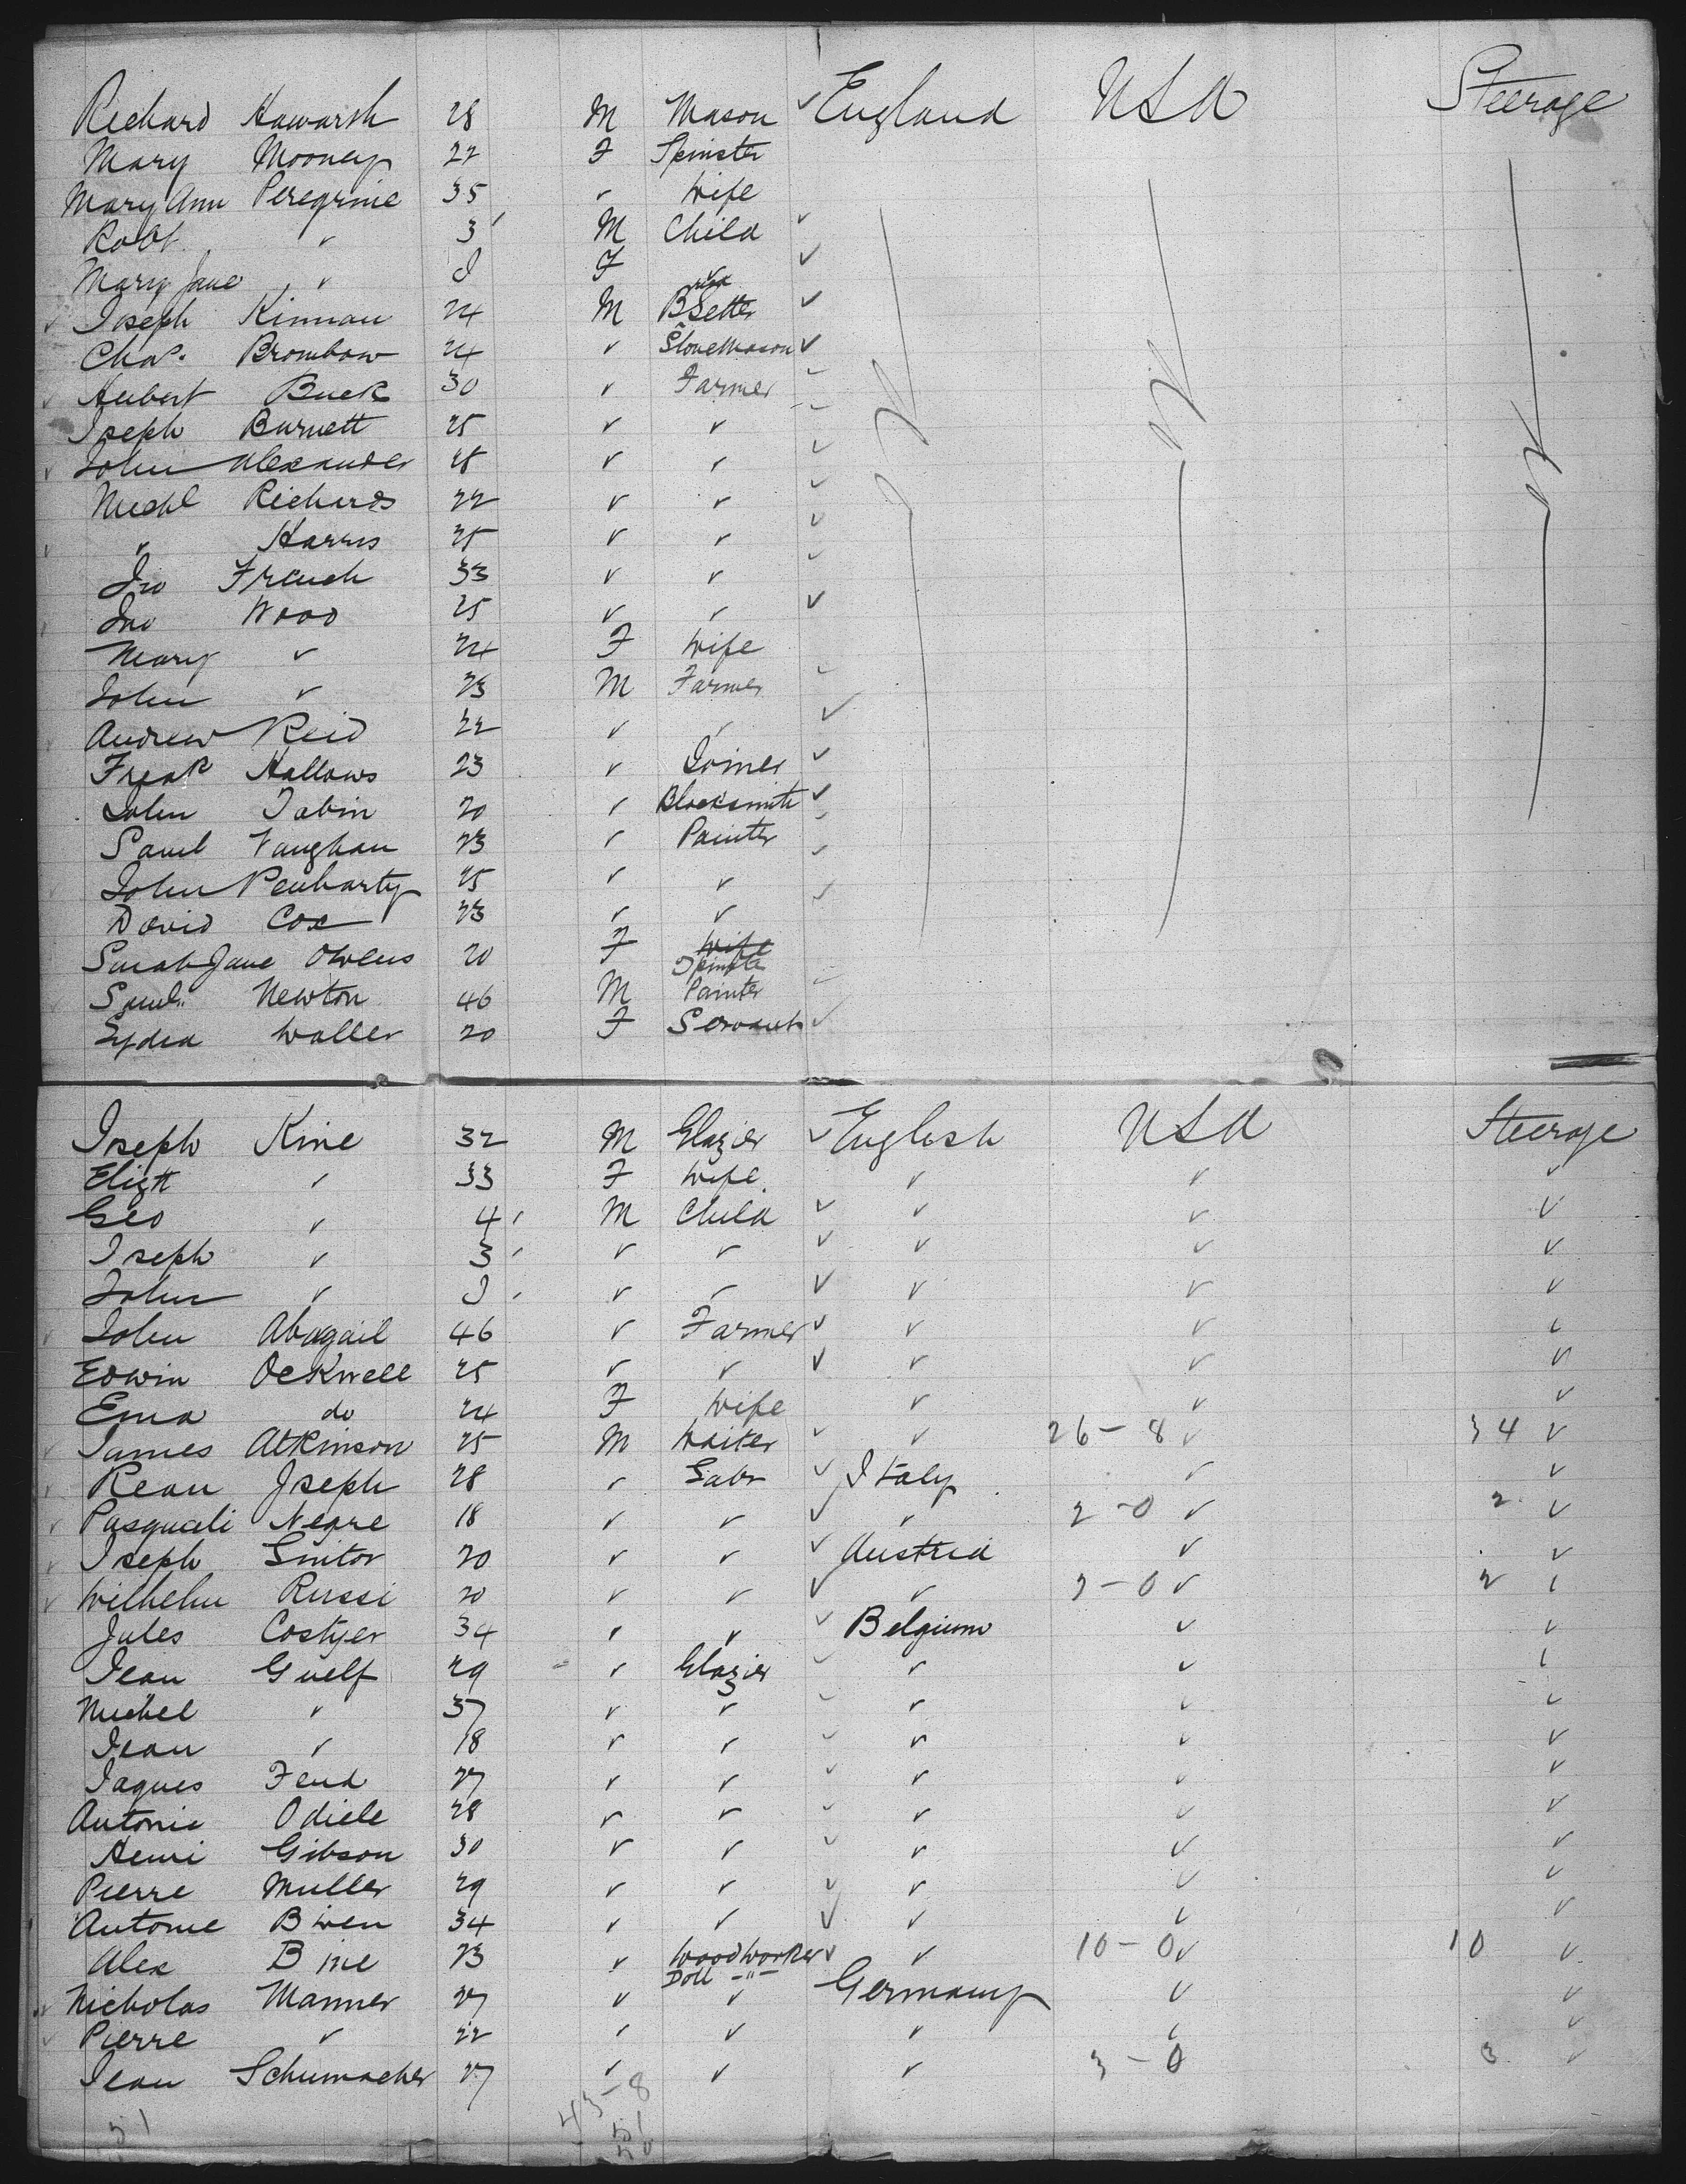 Richard Haworth 28 M Mason ✓ England USA Steerage
Mary Mooney 22 F Spinster
Mary Ann Peregrine 35 ✓ Wife
Robt ✓ 3 M Child ✓
Mary Jane ✓ F ✓ ✓
✓ Joseph Kinnan 24 M Setter ✓
Chas. Brombow 24 ✓ Stonemason ✓
✓ Hubert Buck 30 ✓ Farmer ✓
Joseph Burnett 25 ✓ ✓ ✓
✓ John Alexander 28 ✓ ✓ ✓
Michl Richards 22 ✓ ✓ ✓
✓ ✓ Harris 25 ✓ ✓ ✓
Jno French 33 ✓ ✓ ✓
Jno Wood 25 ✓ ✓ ✓
Mary ✓ 24 F Wife
John ✓ 23 M Farmer ✓
Andrew Reid 22 ✓ ✓ ✓
Fredk Hallows 23 ✓ Joiner ✓
John Tabin 20 ✓ Blacksmith ✓
Saml Vaughan 23 ✓ Painter ✓
John Penharty 25 ✓ ✓ ✓
David Cox 23 ✓ ✓ ✓
Sarah Jane Owens 20 F Wife
Spinster
Saml Newton 46 M Painter ✓
Lydia Waller 20 F Servant ✓
Joseph Kine 32 M Glazier ✓ English USA Steerage
Elizth ✓ 33 F Wife ✓ ✓ ✓
Geo ✓ 4 M Child ✓ ✓ ✓ ✓
Joseph ✓ 3 ✓ ✓ ✓ ✓ ✓ ✓
John ✓ ✓ ✓ ✓ ✓ ✓ ✓
✓ John Abagail 46 ✓ Farmer ✓ ✓ ✓ ✓
Edwin Ockwell 25 ✓ ✓ ✓ ✓ ✓ ✓
Ema do 24 F Wife ✓ ✓ ✓
✓ James Atkinson 25 M Waiter ✓ ✓ 26-8 ✓ 34 ✓
✓ Rean Joseph 28 ✓ Labr ✓ Italy ✓ ✓
✓ Pasquali Negre 18 ✓ ✓ ✓ ✓ 2-0 ✓ 2 ✓
✓ Joseph Smitor 20 ✓ ✓ ✓ Austria ✓ ✓
✓ Wilhelm Russi 20 ✓ ✓ ✓ ✓ 2-0 ✓ 2 ✓
Jules Costyer 34 ✓ ✓ ✓ Belgium ✓ ✓
Jean Guelf 29 ✓ Glazier ✓ ✓ ✓ ✓
Michel ✓ 37 ✓ ✓ ✓ ✓ ✓ ✓
Jean ✓ 18 ✓ ✓ ✓ ✓ ✓ ✓
Jaques Feud 27 ✓ ✓ ✓ ✓ ✓ ✓
Antonie Odiele 28 ✓ ✓ ✓ ✓ ✓ ✓
Henri Gibson 30 ✓ ✓ ✓ ✓ ✓ ✓
Pierre Muller 29 ✓ ✓ ✓ ✓ ✓ ✓
Antonie Biven 34 ✓ ✓ ✓ ✓ ✓ ✓
Alex Bine 23 ✓ Woodworker ✓ ✓ 10-0 ✓ 10 ✓
✓ Nicholas Manner 27 ✓ ✓ Germany ✓ ✓
✓ Pierre ✓ 22 ✓ ✓ ✓ ✓ ✓
Jean Schumacher 27 ✓ ✓ ✓ 3-0 3 ✓
51 43-8
51